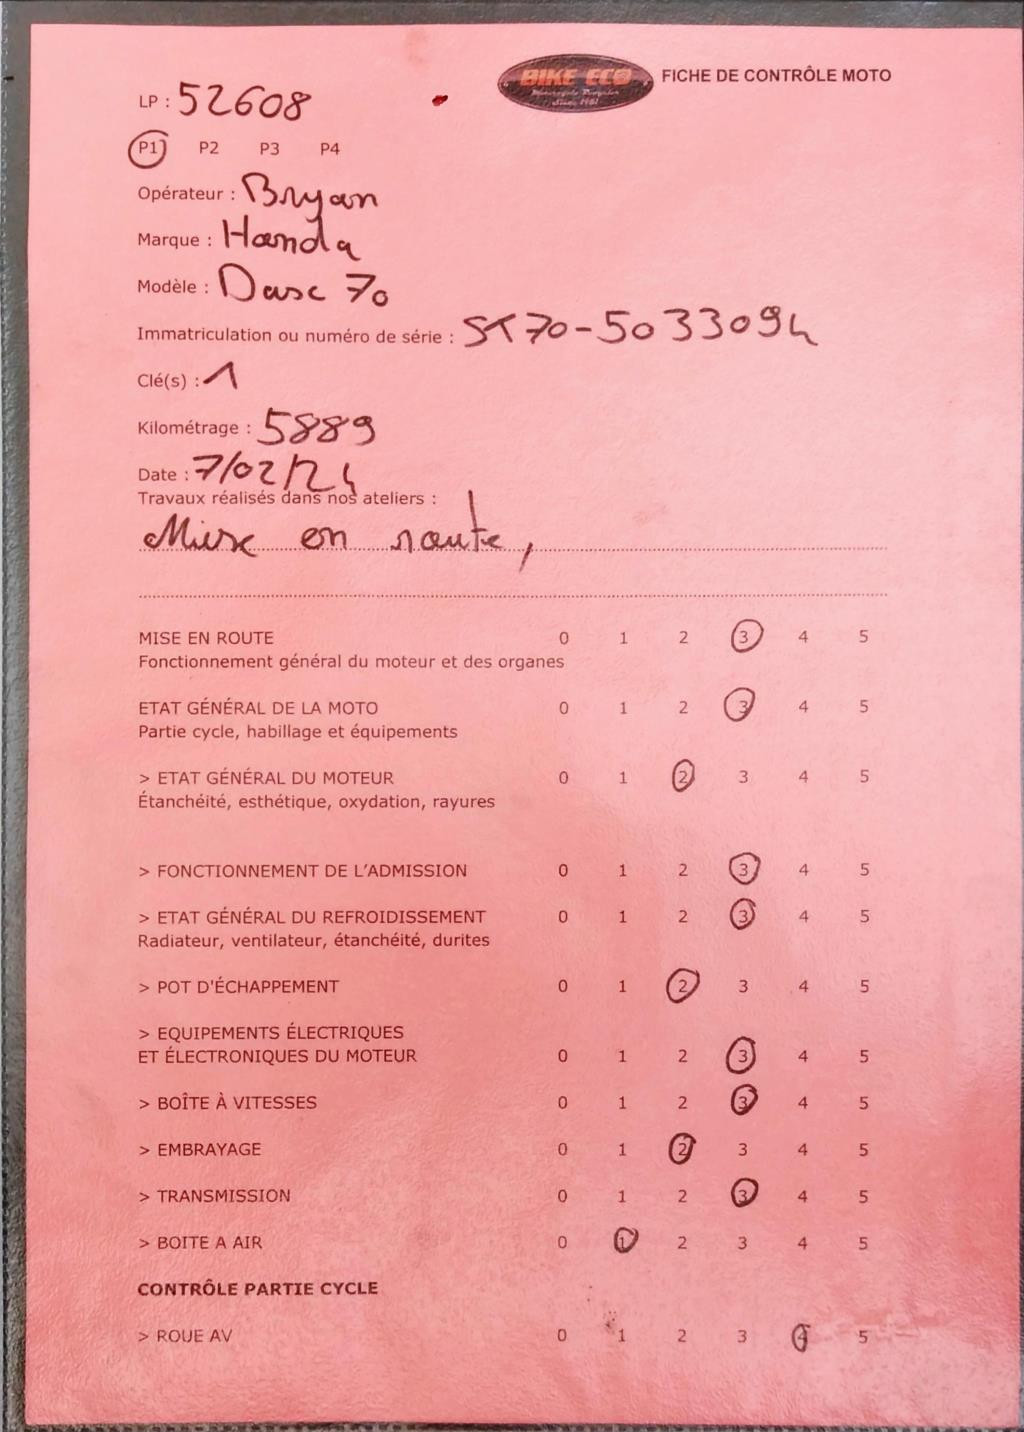 BIKE ECO
Motorcycle Recycler
Since 1981
FICHE DE CONTRÔLE MOTO
LP : 52608
P1 P2 P3 P4
Opérateur : Bryan
Marque : Honda
Modèle : Dax 70
Immatriculation ou numéro de série : ST70-5033094
Clé(s) : 1
Kilométrage : 5889
Date : 7/02/24
Travaux réalisés dans nos ateliers :
Mise en route,
MISE EN ROUTE 0 1 2 3 4 5
Fonctionnement général du moteur et des organes
ETAT GÉNÉRAL DE LA MOTO 0 1 2 3 4 5
Partie cycle, habillage et équipements
> ETAT GÉNÉRAL DU MOTEUR 0 1 2 3 4 5
Étanchéité, esthétique, oxydation, rayures
> FONCTIONNEMENT DE L'ADMISSION 0 1 2 3 4 5
> ETAT GÉNÉRAL DU REFROIDISSEMENT 0 1 2 3 4 5
Radiateur, ventilateur, étanchéité, durites
> POT D'ÉCHAPPEMENT 0 1 2 3 4 5
> EQUIPEMENTS ÉLECTRIQUES
ET ÉLECTRONIQUES DU MOTEUR 0 1 2 3 4 5
> BOÎTE À VITESSES 0 1 2 3 4 5
> EMBRAYAGE 0 1 2 3 4 5
> TRANSMISSION 0 1 2 3 4 5
> BOITE A AIR 0 1 2 3 4 5
CONTRÔLE PARTIE CYCLE
> ROUE AV 0 1 2 3 4 5